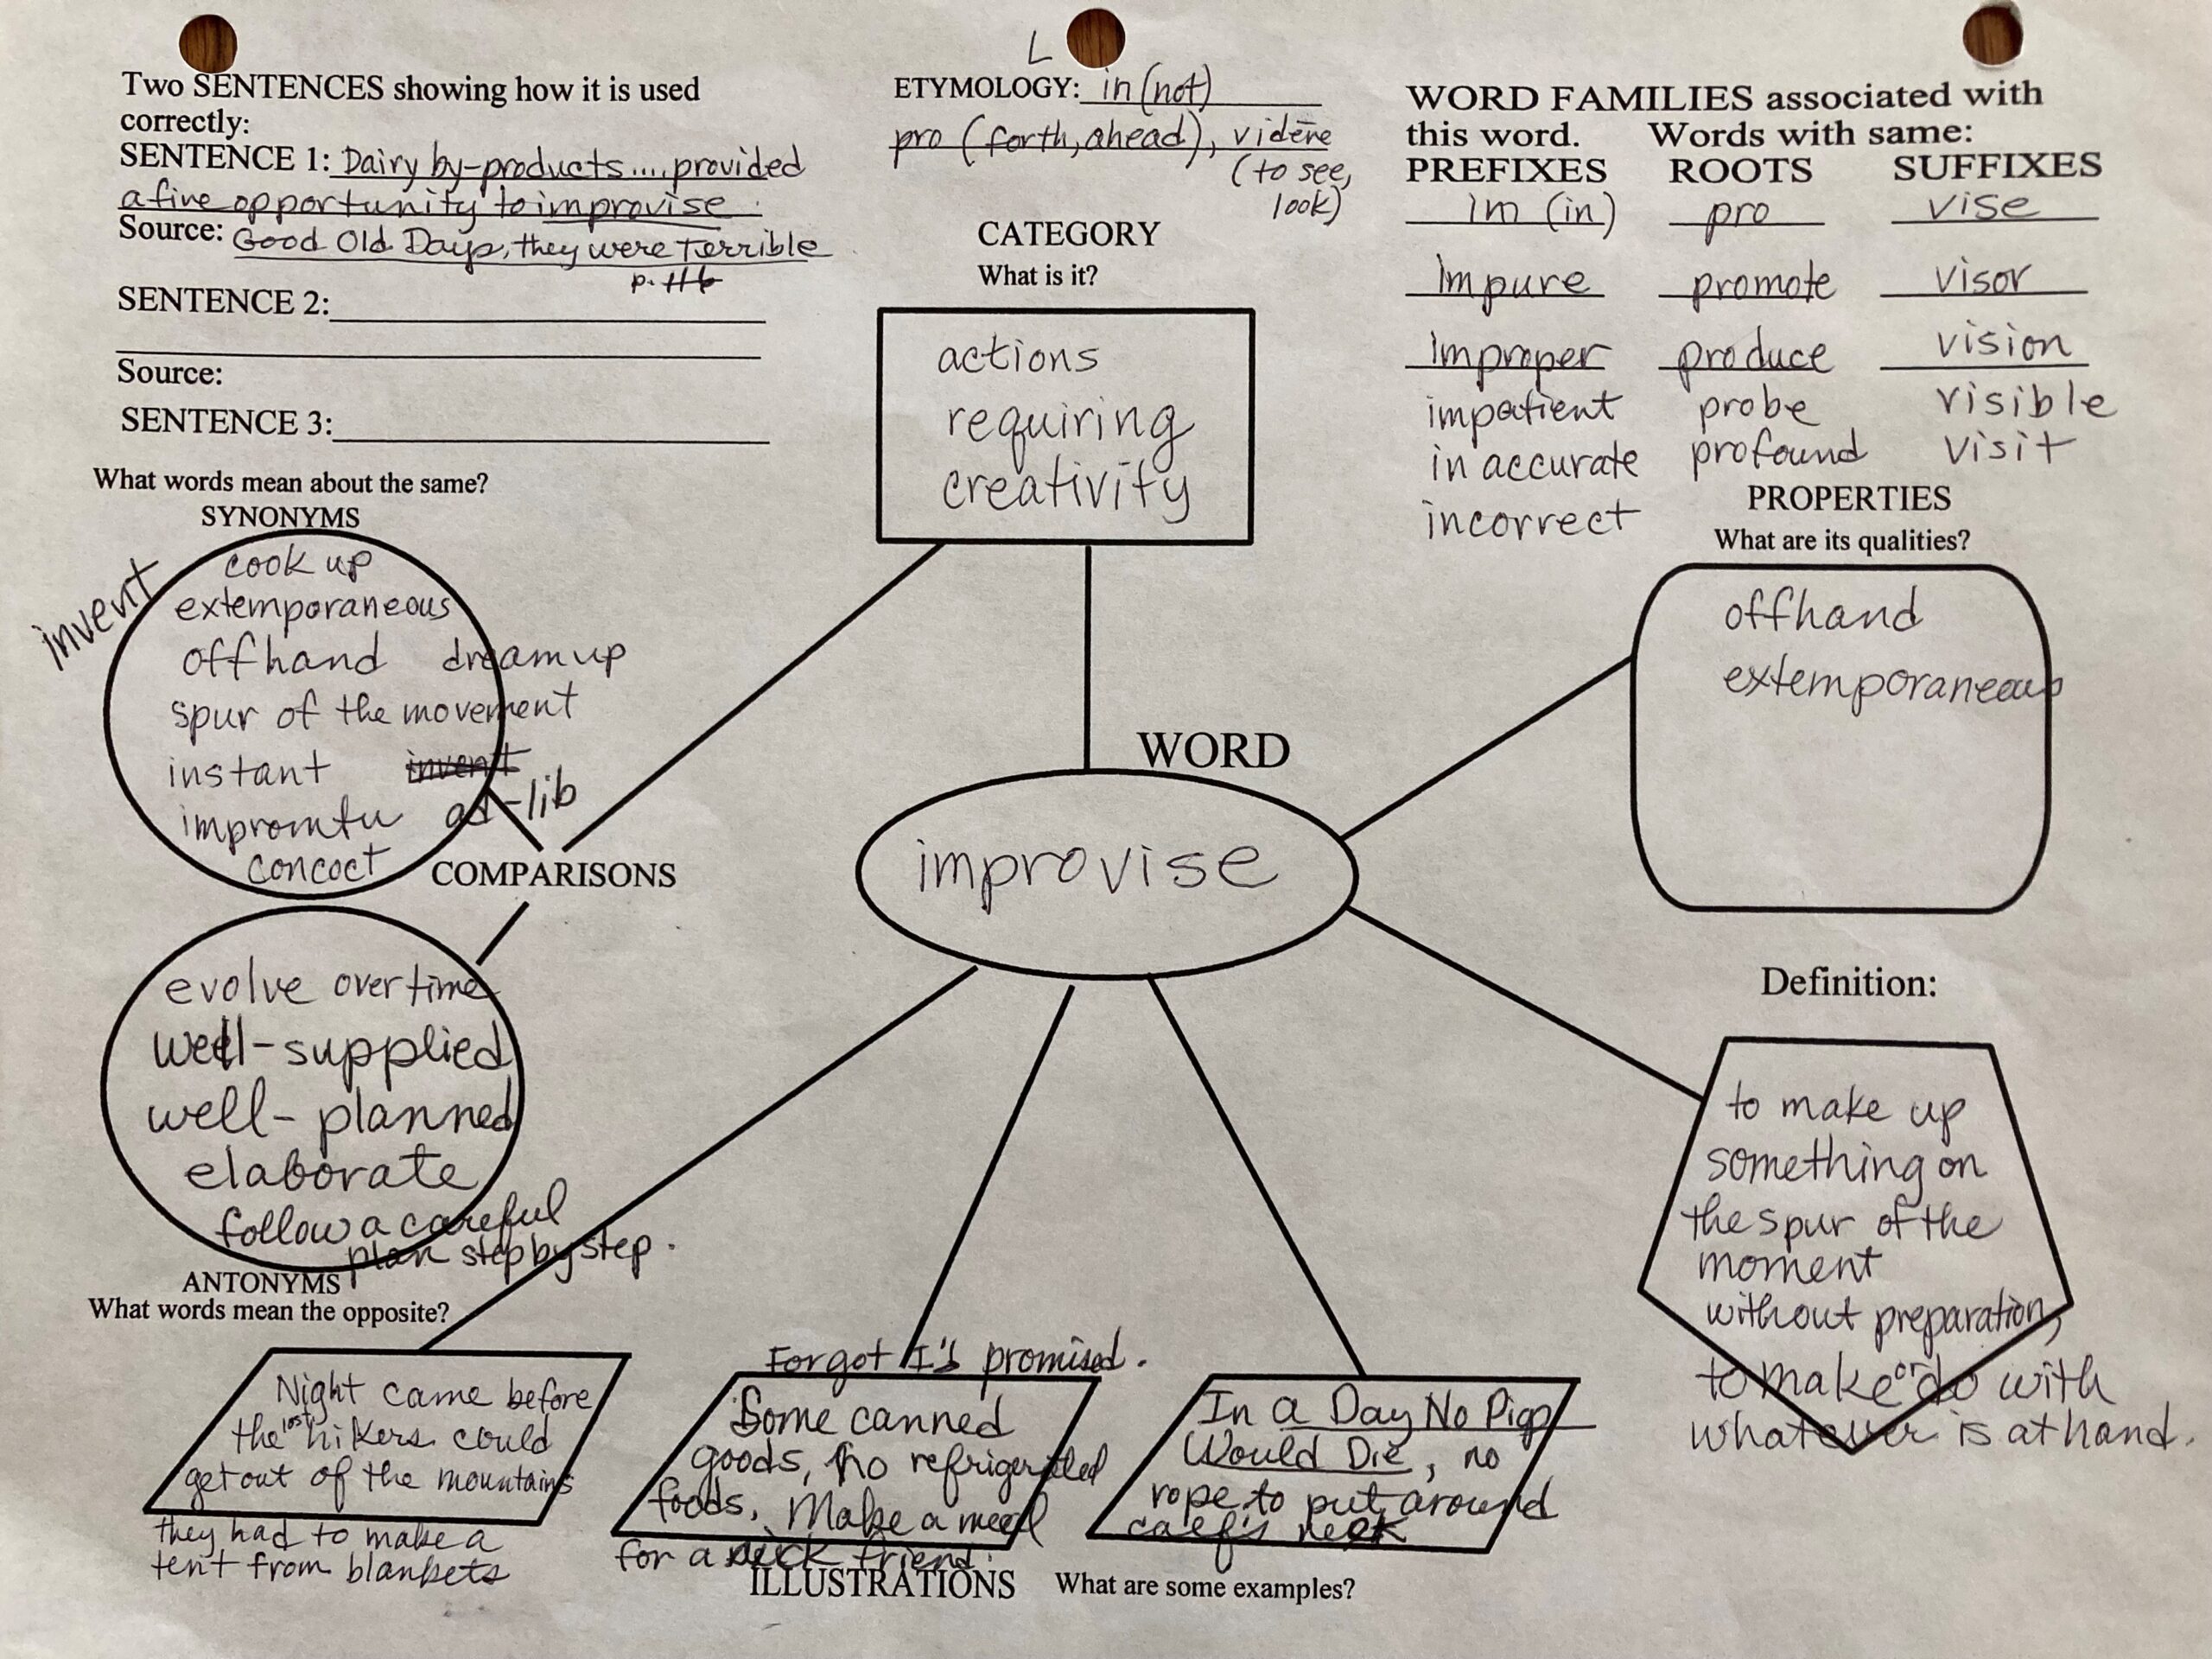 Two SENTENCES showing how it is used
correctly:
SENTENCE 1: Dairy by-products....provided
a fine opportunity to improvise.
Source: Good Old Days, they were Terrible
p. 116
SENTENCE 2:
Source:
SENTENCE 3:
L
ETYMOLOGY: in (not)
pro (forth, ahead), vidēre
(to see,
look)
WORD FAMILIES associated with
this word. Words with same:
PREFIXES ROOTS SUFFIXES
im (in) pro vise
impure promote visor
improper produce vision
impatient probe visible
in accurate profound visit
incorrect
CATEGORY
What is it?
actions
requiring
creativity
What words mean about the same?
SYNONYMS
invent
cook up
extemporaneous
offhand dream up
spur of the movement
instant invent
impromtu ad-lib
concoct
COMPARISONS
WORD
improvise
PROPERTIES
What are its qualities?
offhand
extemporaneous
evolve over time
well-supplied
well-planned
elaborate
follow a careful
plan step by step.
ANTONYMS
What words mean the opposite?
Definition:
to make up
something on
the spur of the
moment
without preparation,
or
to make do with
whatever is at hand.
Night came before
the lost hikers could
get out of the mountains
they had to make a
tent from blankets
Forgot I'd promised.
Some canned
goods, no refrigerated
foods. Make a meal
for a sick friend.
In a Day No Pigs
Would Die, no
rope to put around
calf's neck
ILLUSTRATIONS What are some examples?